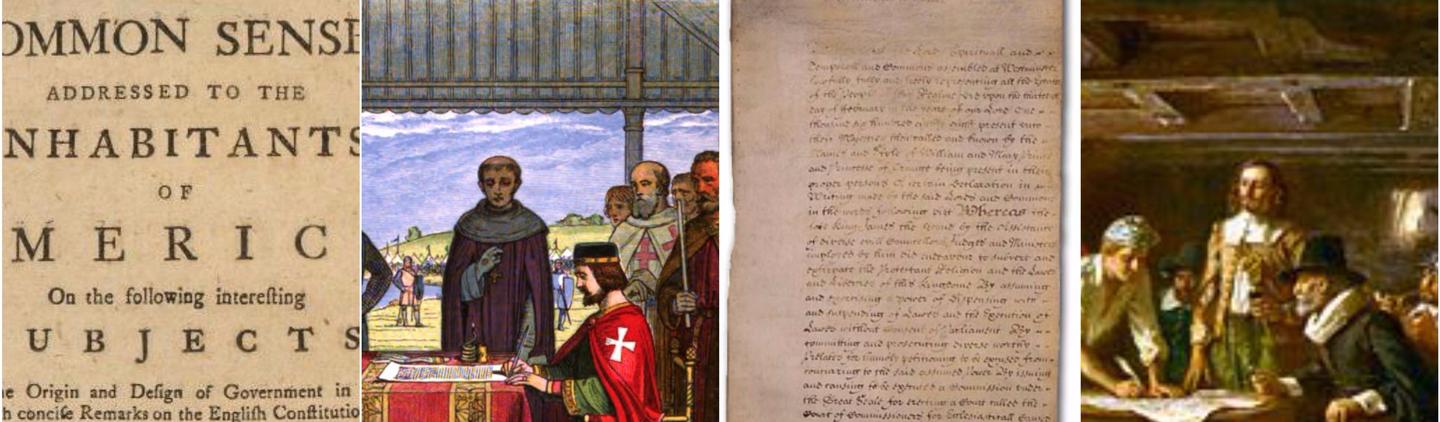 OMMON SENSE
ADDRESSED TO THE
NHABITANTS
OF
MERIC
On the following intereſting
UBJECTS
e Origin and Deſign of Government in
h conciſe Remarks on the Engliſh Conſtitutio
the Lords Spirituall and
Temporall and Commons assembled at Westminster
lawfully fully and freely representing all the Estates
of the People of this Realme did upon the
day of February in the yeare of our Lord one
thousand six hundred eighty eight present unto
their Majesties then called and known by the
Names and Stile of William and Mary Prince
and Princesse of Orange being present in their
proper persons A certain Declaration in
Writing made by the said Lords and Commons
in the words following viz Whereas the
late King James the Second by the Assistance
of diverse evill Councellors Judges and Ministers
imployed by him did endeavour to subvert and
extirpate the Protestant Religion and the Lawes
and Liberties of this Kingdome By assuming
and exercising a power of Dispensing with
and suspending of Lawes and the Execution of
Lawes without Consent of Parliament By
committing and prosecuting diverse worthy
Prelates for humbly petitioning to be excused from
concurring to the said assumed Power By issuing
and causing to be executed a Commission under
the Great Seale for erecting a Court called the
Court of Commissioners for Ecclesiasticall Causes